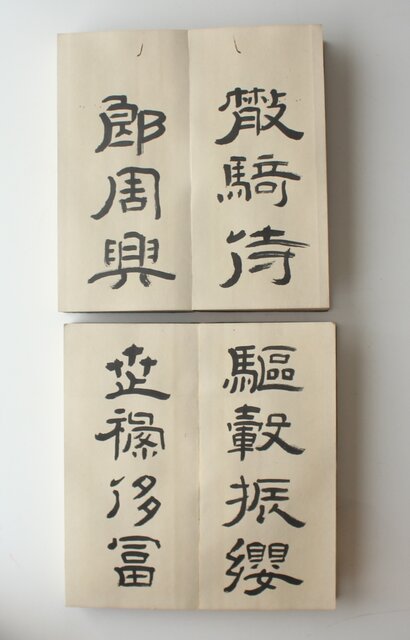 散騎侍
郎周興
驅轂振纓
世祿侈冨